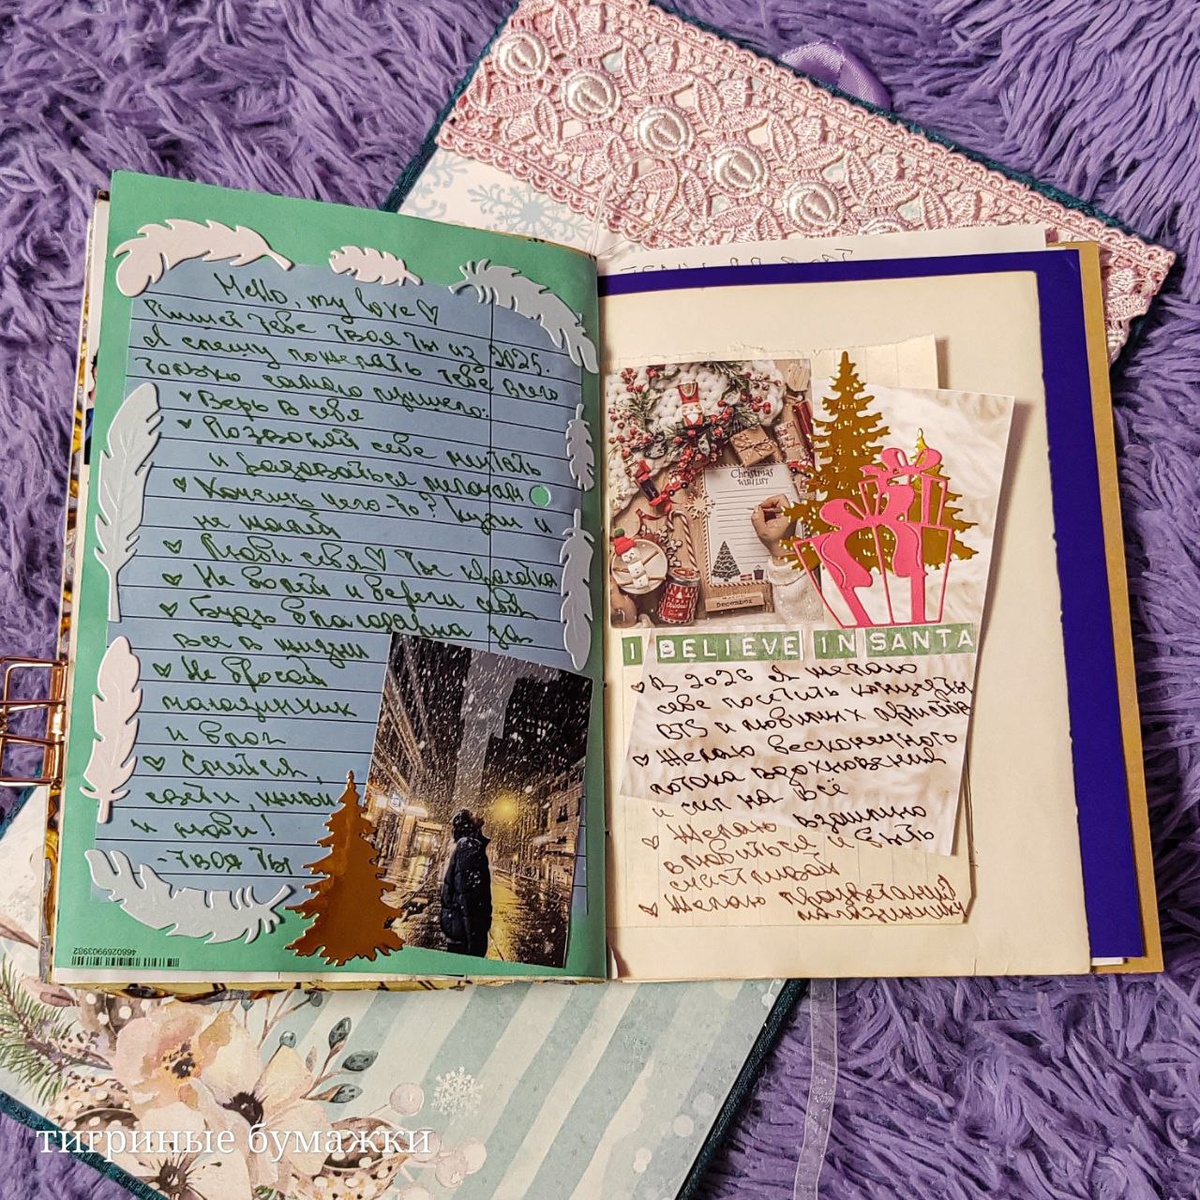 Hello, my love♡
Пишет тебе твоя ты из 2025.
Я спешу пожелать тебе всего
только самого лучшего:
♥ Верь в себя
♥ Позволяй себе мечтать
и радоваться мелочам
♥ Хочешь чего-то? Купи и
не жалей
♥ Люби себя♡ Ты красотка
♥ Не болей и береги
♥ Будь благодарна за
всё в жизни
♥ Не бросай
магазинчик
и блог
♥ Смейся,
живи
и люби!
-твоя ты
4680269903982
Christmas
WISH LIST
DECEMBER
I BELIEVE IN SANTA
♡ В 2026 я желаю
себе посетить концерты
BTS и любимых артистов
♡ Желаю бесконечного
потока вдохновения
и сил на всё
♡ Желаю взаимно
влюбиться и быть
счастливой
♡ Желаю процветания
магазинчику
тигриные бумажки